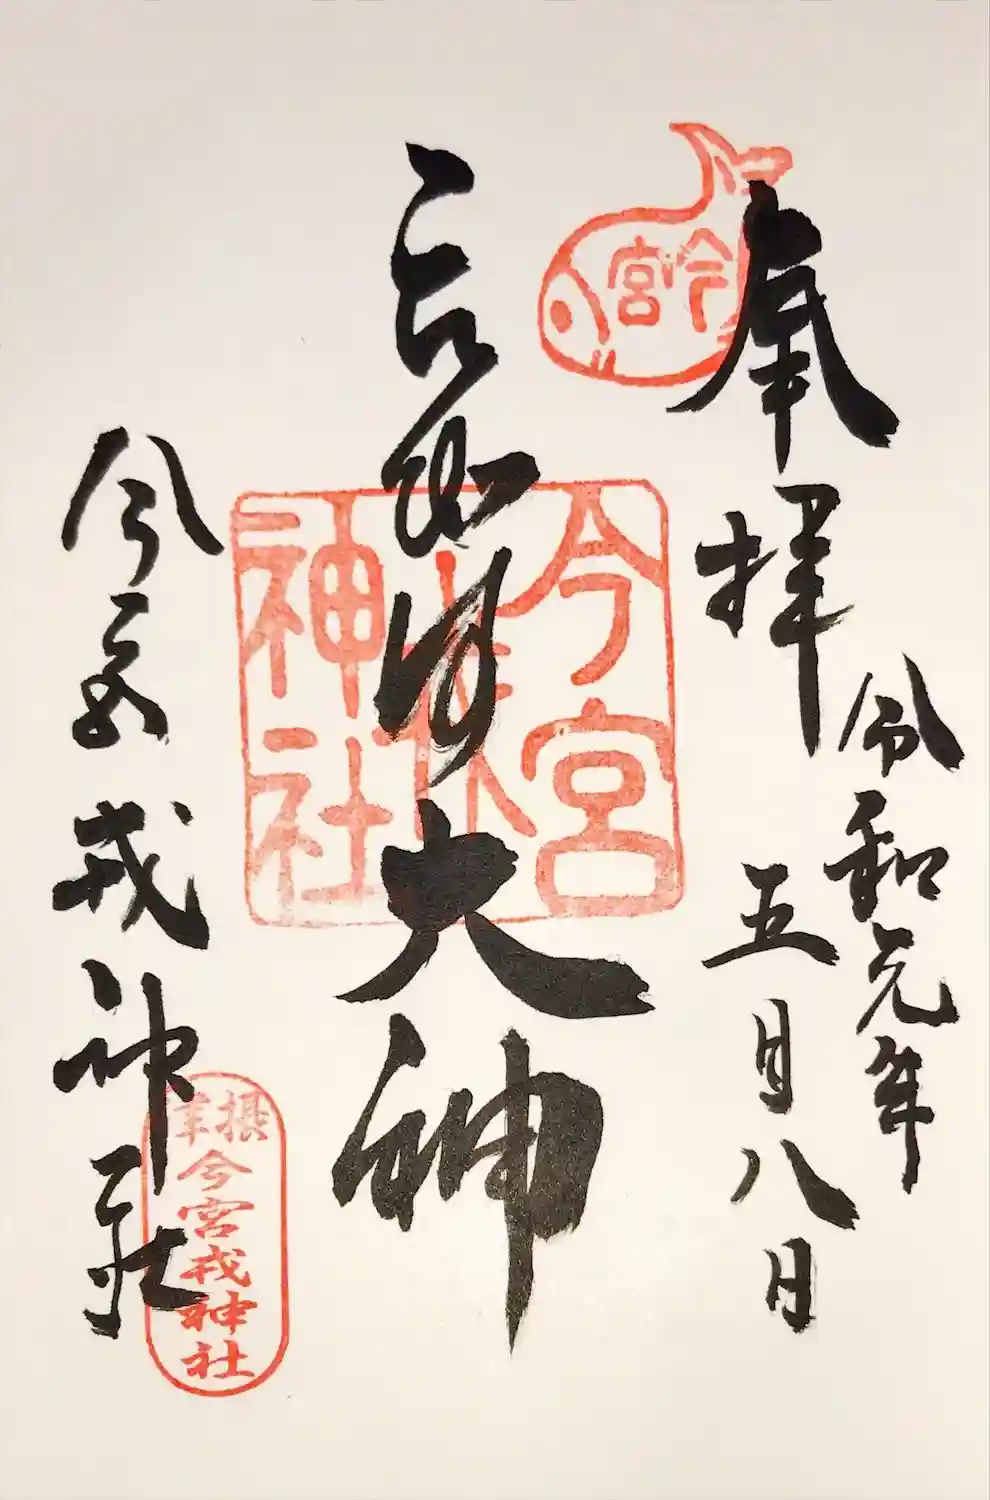 奉拝
令和元年
五月八日
今宮
大神
今宮
戎
神社
今宮戎神社
摂津
今宮戎神社